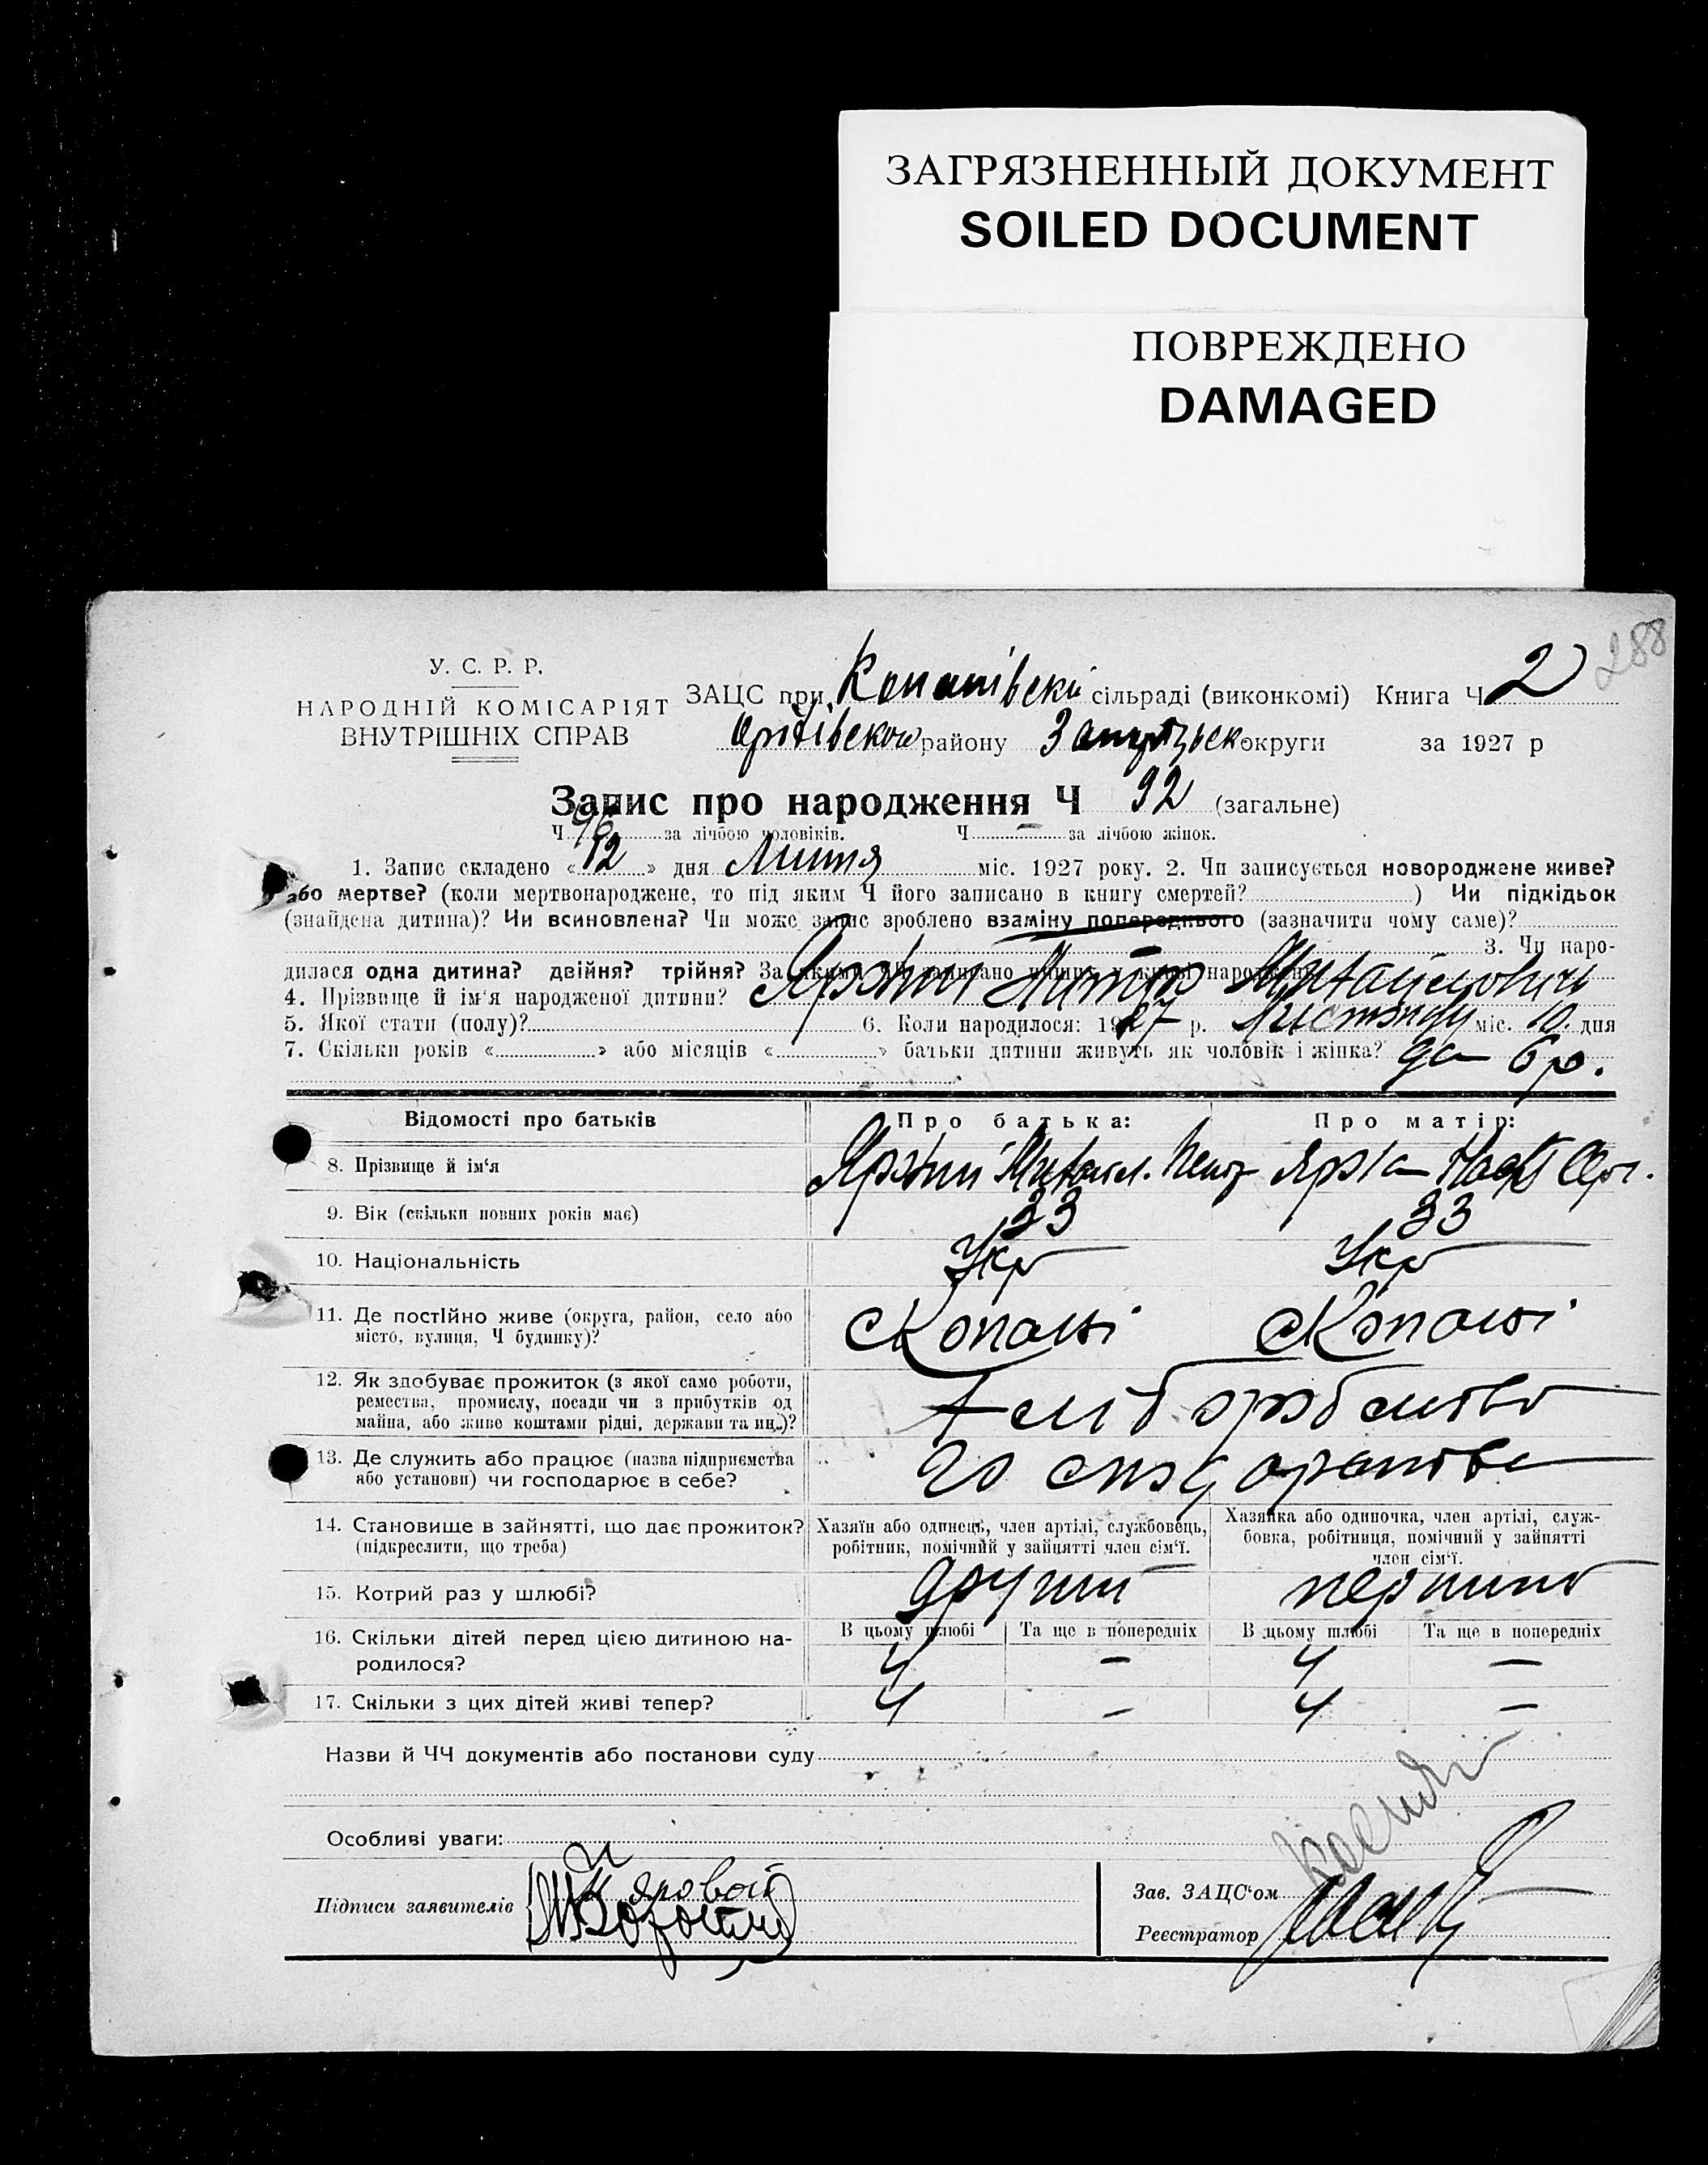 ЗАГРЯЗНЕННЫЙ ДОКУМЕНТ
SOILED DOCUMENT
ПОВРЕЖДЕНО
DAMAGED
288
У. С. Р. Р.
НАРОДНІЙ КОМІСАРІЯТ
ВНУТРІШНІХ СПРАВ
ЗАЦС при Копанівскі сільраді (виконкомі) Книга Ч 2
Оріхівского району Запорізьск округи за 1927 р
Запис про народження Ч 92 (загальне)
Ч 46 за лічбою чоловіків. Ч — за лічбою жінок.
1. Запис складено «12» дня міс. 1927 року. 2. Чи записується новороджене живе?
або мертве? (коли мертвонароджене, то під яким Ч його записано в книгу смертей? ) Чи підкідьок
(знайдена дитина)? Чи всиновлена? Чи може запис зроблено взаміну попереднього (зазначити чому саме)?
3. Чи наро-
дилася одна дитина? двійня? трійня? За якими ЧЧ записано инших живі народжені
4. Прізвище й ім'я народженої дитини? Михайлович
5. Якої стати (полу)? 6. Коли народилося: 1927 р. міс. 10 дня
7. Скільки років « » або місяців « » батьки дитини живуть як чоловік і жінка? да 6 р.
Відомості про батьків Про батька: Про матір:
8. Прізвище й ім'я
9. Вік (скільки повних років має) 33 33
10. Національність Укр Укр
11. Де постійно живе (округа, район, село або
місто, вулиця, Ч будинку)? Копані Копані
12. Як здобуває прожиток (з якої само роботи,
ремества, промислу, посади чи з прибутків од
майна, або живе коштами рідні, держави та ин.)? хліборобство
13. Де служить або працює (назва підприємства
або установи) чи господарює в себе? господарство
14. Становище в зайнятті, що дає прожиток?
(підкреслити, що треба)
Хазяїн або одинець, член артілі, службовець,
робітник, помічний у зайнятті член сім'ї.
Хазяйка або одиночка, член артілі, служ-
бовка, робітниця, помічний у зайнятті
член сім'ї.
15. Котрий раз у шлюбі? другий
16. Скільки дітей перед цією дитиною на-
родилося?
В цьому шлюбі Та ще в попередніх В цьому шлюбі Та ще в попередніх
4 — 4 —
17. Скільки з цих дітей живі тепер? 4 — 4 —
Назви й ЧЧ документів або постанови суду
Особливі уваги:
Підписи заявителів Яровой
Зав. ЗАЦС'ом
Реєстратор